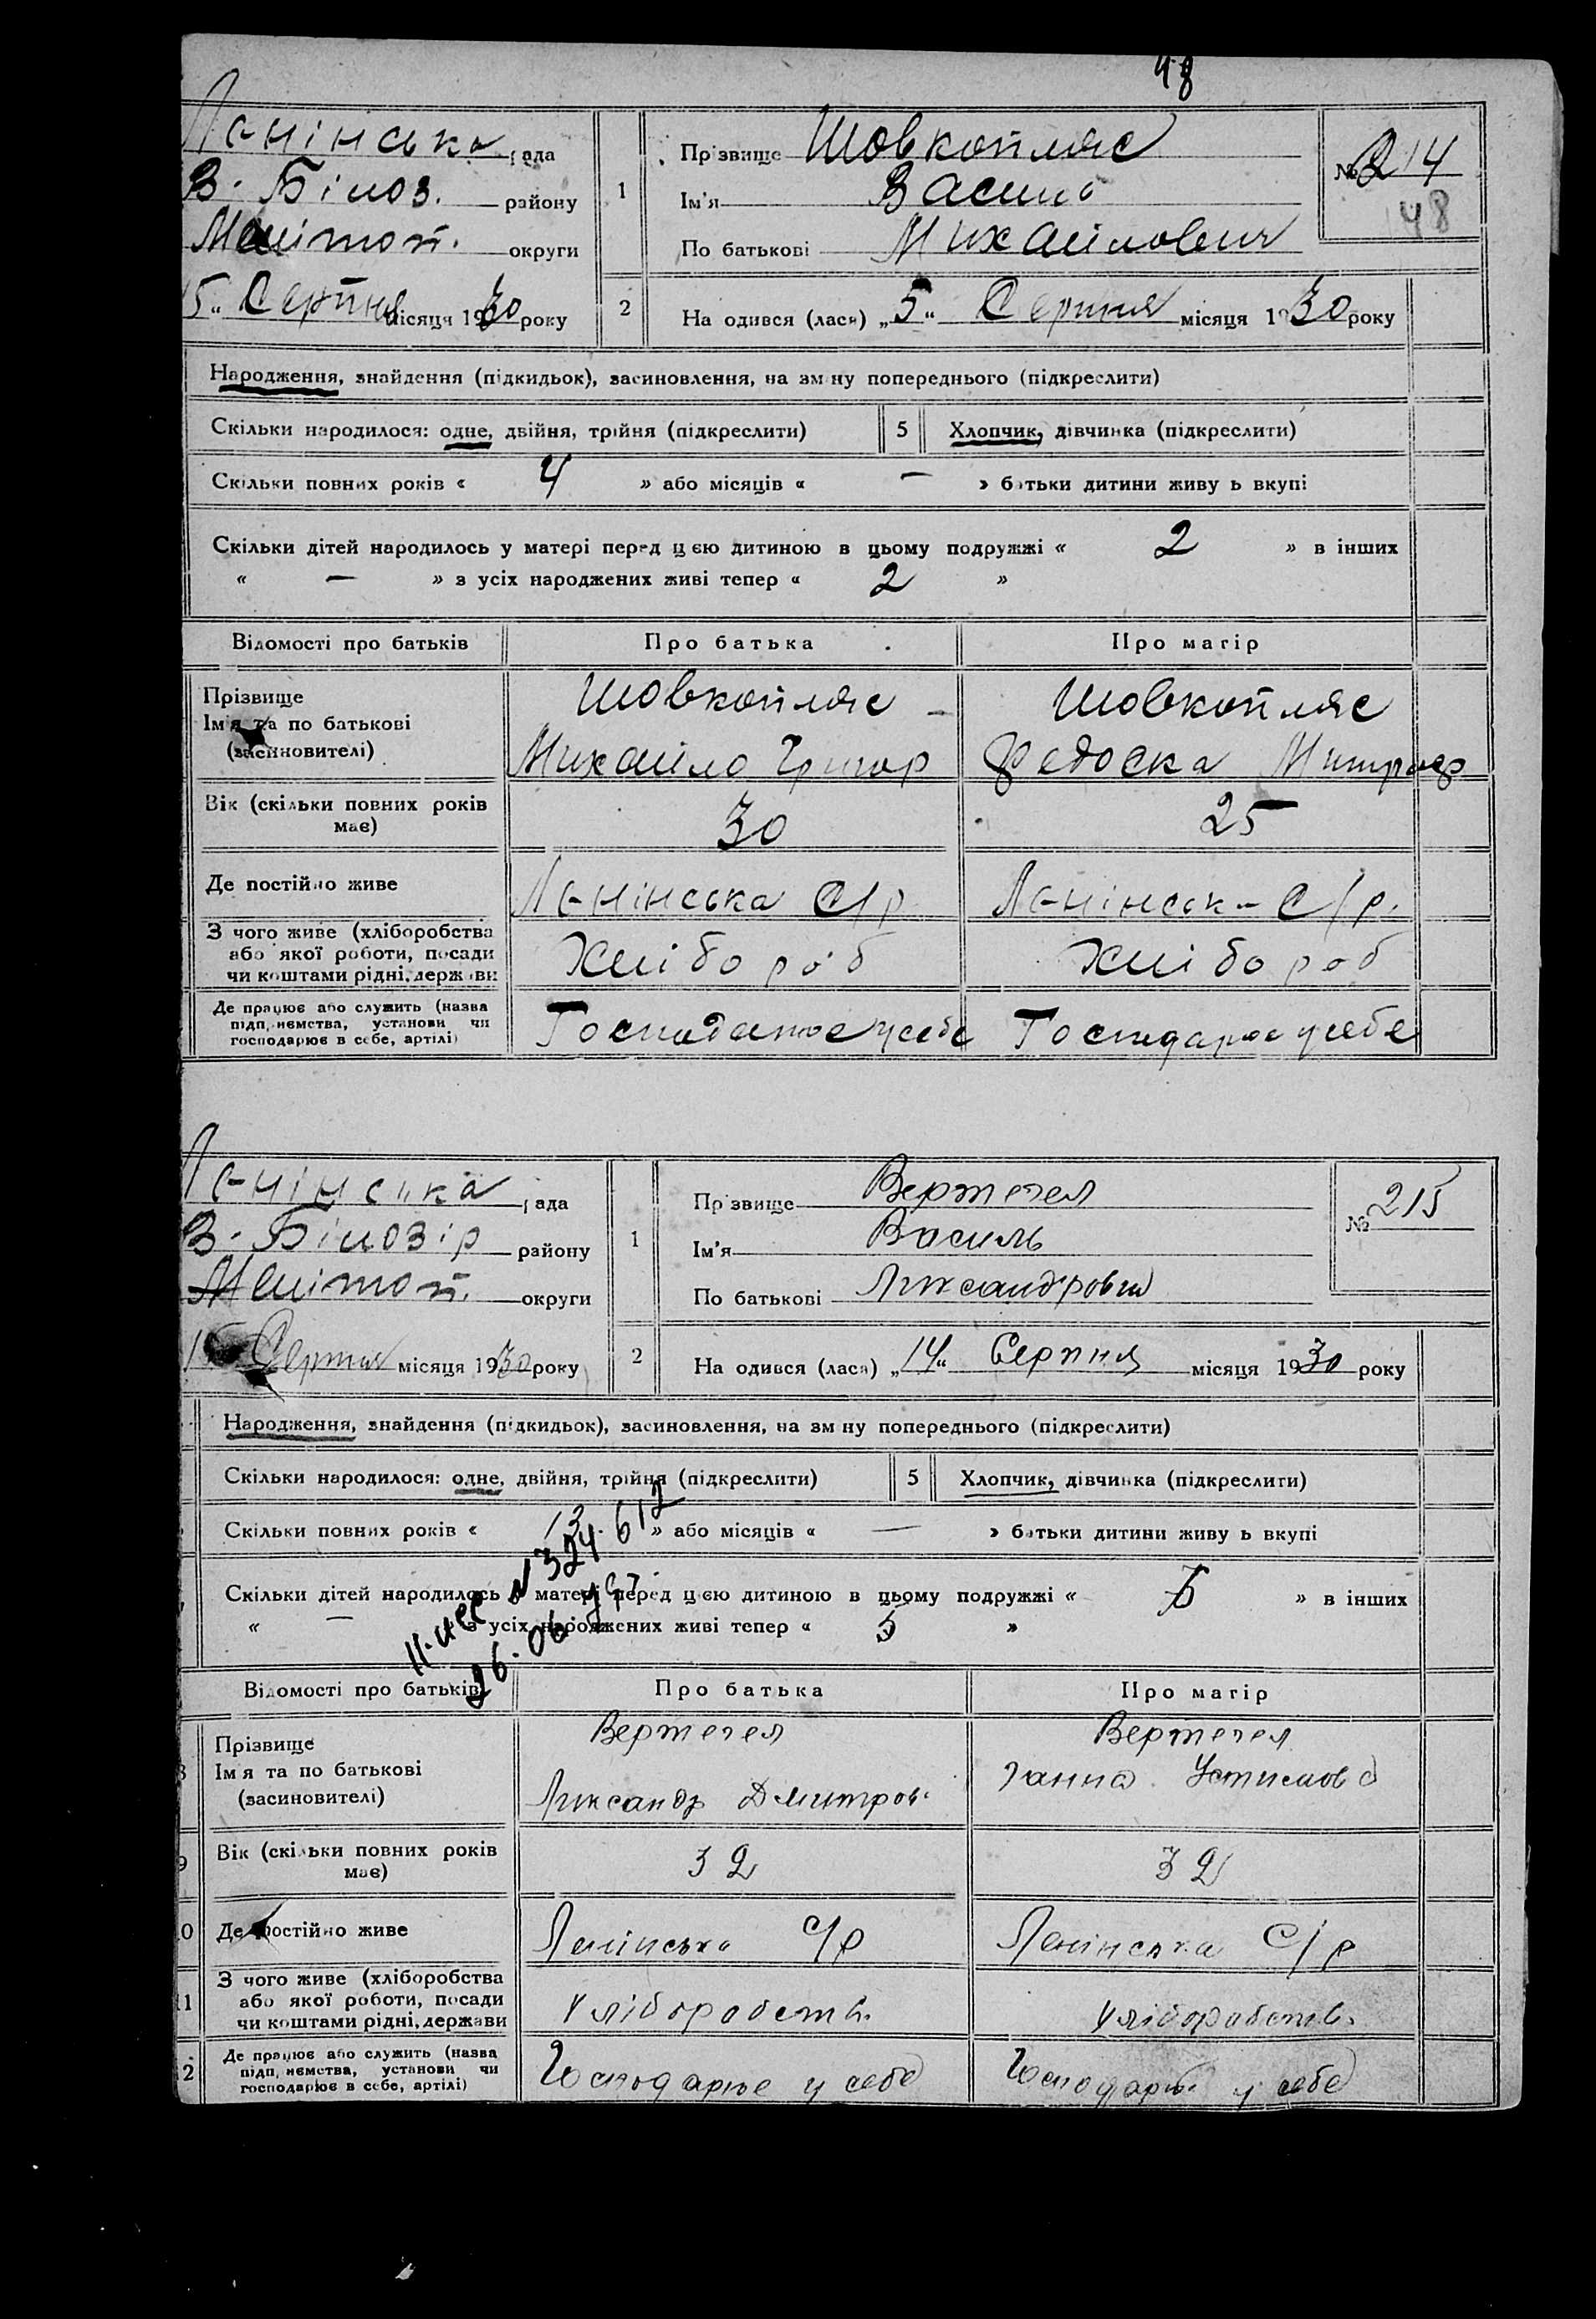 48
Ленінська рада
В. Білоз. району
Меліт оп. округи
15 " Серпня місяця 1930 року
1
Прізвище Шовкопляс
Ім'я Василь
По батькові Михайлович
№ 214
48
2
На одився (лася) „5" Серпня місяця 1930 року
Народження, знайдення (підкидьок), засиновлення, на зміну попереднього (підкреслити)
Скільки народилося: одне, двійня, трійня (підкреслити) 5 Хлопчик, дівчинка (підкреслити)
Скільки повних років « 4 » або місяців « — » батьки дитини живу ь вкупі
Скільки дітей народилось у матері перед цією дитиною в цьому подружжі « 2 » в інших
« — » з усіх народжених живі тепер « 2 »
Відомості про батьків Про батька Про матір
Прізвище Шовкопляс Шовкопляс
Ім'я та по батькові Михайло Григор Федоска Митроф
(засиновителі)
Вік (скільки повних років 30 25
має)
Де постійно живе Ленінська С/р Ленінськ- С/р.
З чого живе (хліборобства
або якої роботи, посади Хлібороб Хлібороб
чи коштами рідні, держави
Де працює або служить (назва
підприємства, установи чи у себе Господарює у себе
господарює в себе, артілі)
Ленінська рада
В. Білозір району
Мелітоп. округи
Серпня місяця 1930 року
1
Прізвище Вертегел
Ім'я Василь
По батькові
№ 215
2
На одився (лася) „14" Серпня місяця 1930 року
Народження, знайдення (підкидьок), засиновлення, на зміну попереднього (підкреслити)
Скільки народилося: одне, двійня, трійня (підкреслити) 5 Хлопчик, дівчинка (підкреслити)
Скільки повних років « 13 » або місяців « — » батьки дитини живу ь вкупі
Скільки дітей народилось у матері перед цією дитиною в цьому подружжі « 5 » в інших
« — з усіх народжених живі тепер « 5 »
N 324.612
26.06
Відомості про батьків Про батька Про матір
Прізвище Вертегел Вертегел
Ім'я та по батькові Дмитров. Ганна Устимов
(засиновителі)
Вік (скільки повних років 32 32
має)
Де постійно живе Ленінська С/р Ленінська С/р
З чого живе (хліборобства
11 або якої роботи, посади хліборобств. хліборобств.
чи коштами рідні, держави
Де працює або служить (назва
12 підприємства, установи чи Господарює у себе Господарює у себе
господарює в себе, артілі)